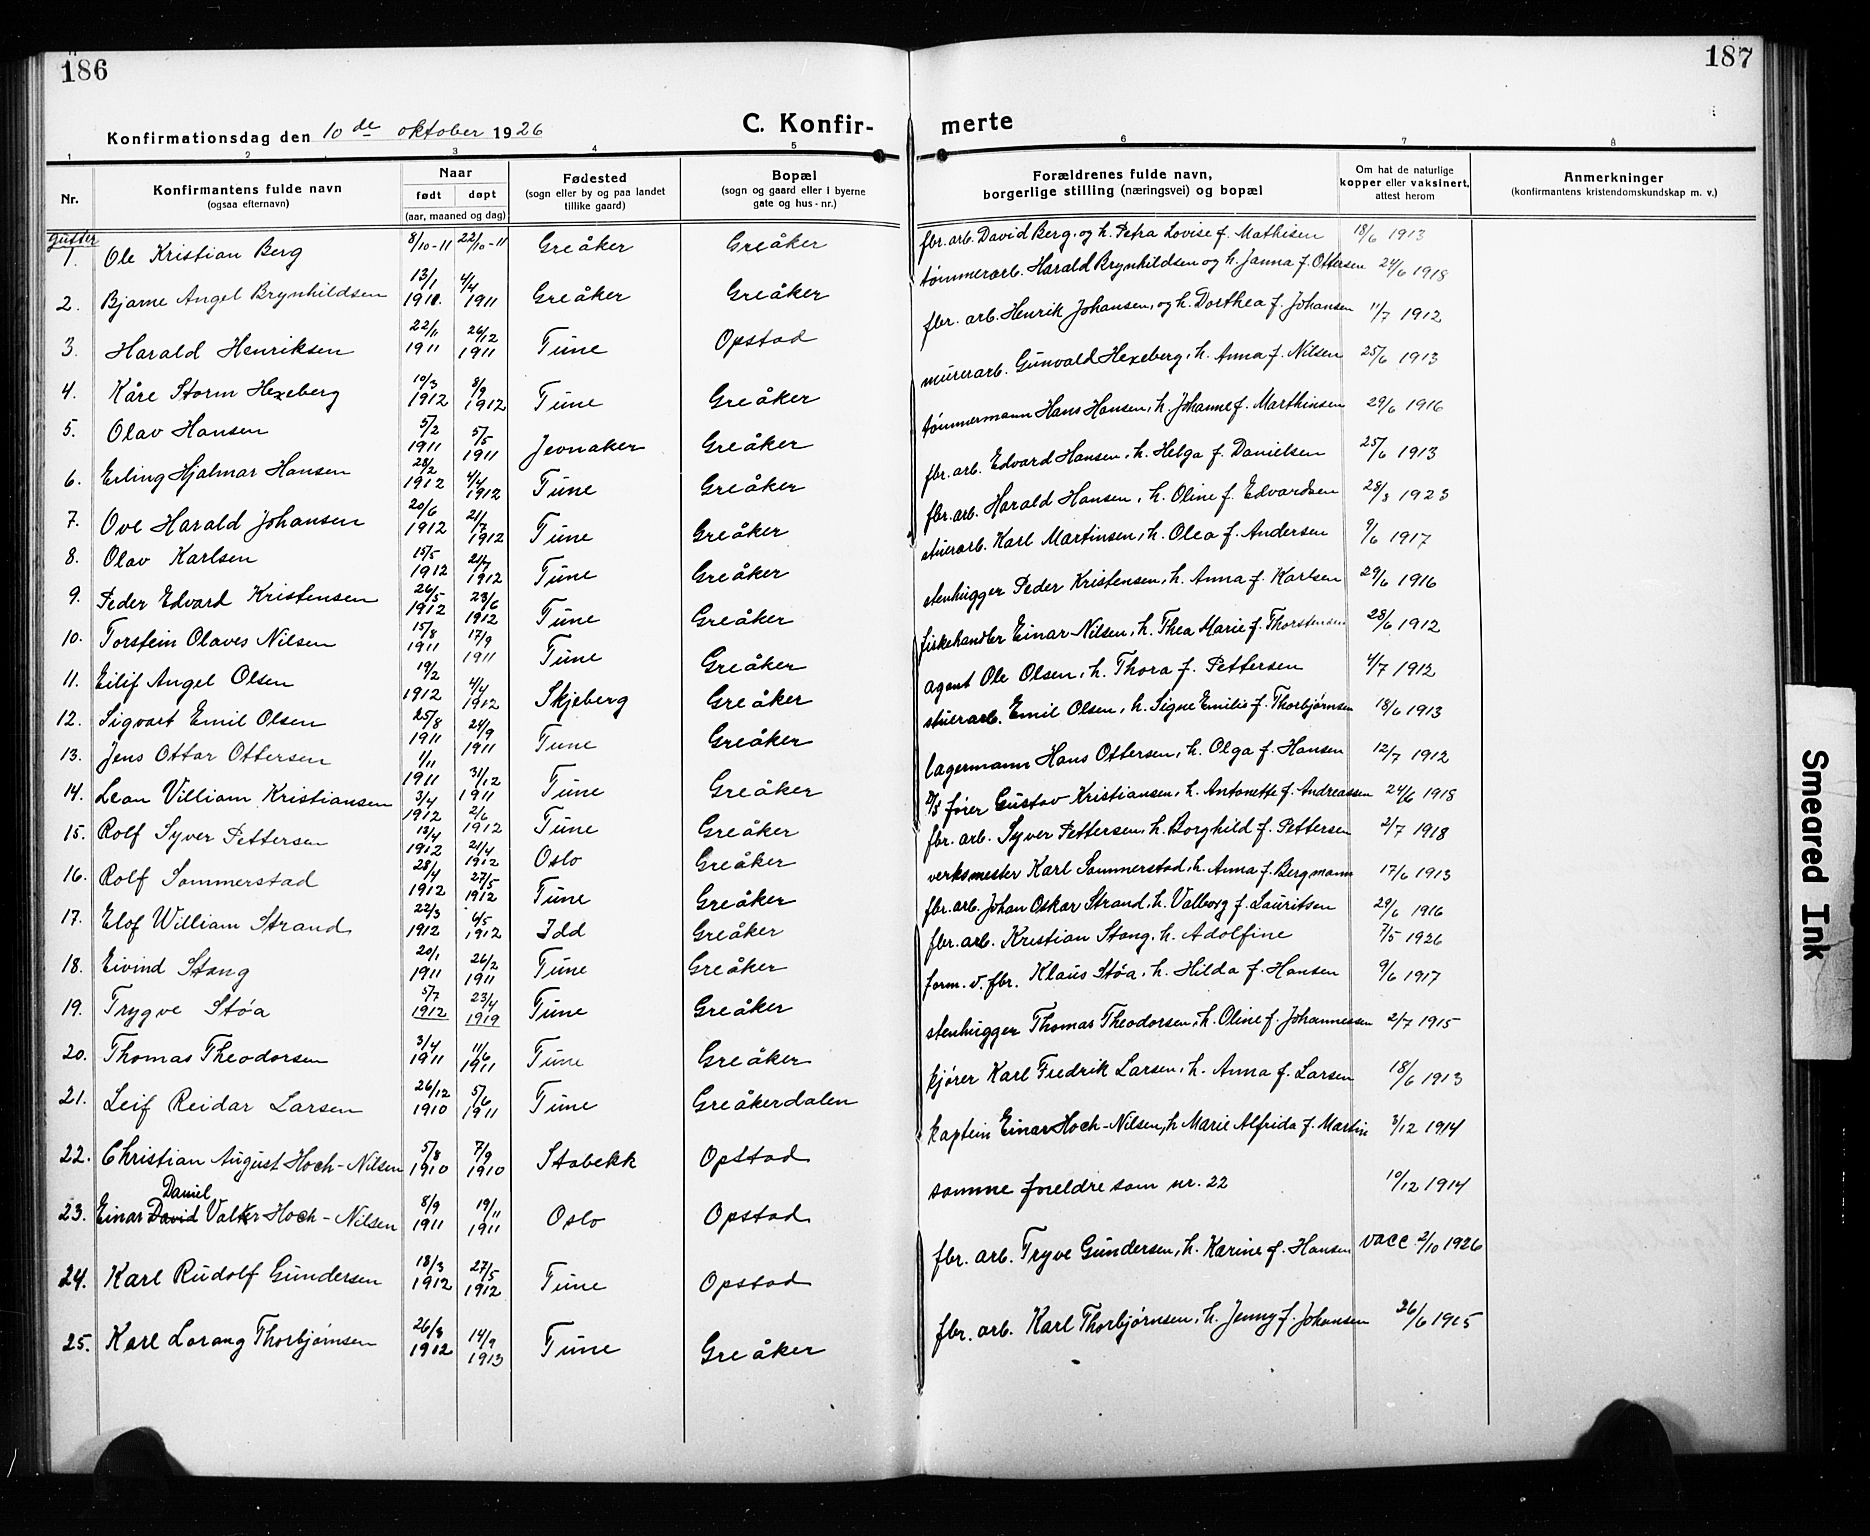 186
187
Konfirmationsdag den 10de oktober 1926
C. Konfir-
merte
1 2 3 4 5 6 7 8
Nr. Konfirmantens fulde navn (ogsaa efternavn) Naar født døpt (aar, maaned og dag) Fødested (sogn eller by og paa landet tillike gaard) Bopæl (sogn og gaard eller i byerne gate og hus-nr.) Forældrenes fulde navn, borgerlige stilling (næringsvei) og bopæl Om hat de naturlige kopper eller vaksinert, attest herom Anmerkninger (konfirmantens kristendomskundskap m. v.)
gutter
1. Ole Kristian Berg 8/10-11 22/10-11 Greåker Greåker fbr. arb. David Berg, og h. Petra Lovise f. Mathisen 18/6 1913
2. Bjarne Angel Brynhildsen 13/1 1911. 4/4 1911 Greåker Greåker tømmerarb. Harald Brynhildsen og h. Janna f. Ottersen 24/6 1918
3. Harald Henriksen 22/11 1911 26/12 1911 Tune Opstad fbr. arb. Henrik Johansen, og h. Dorthea f. Johansen 11/7 1912
4. Kåre Storm Hexeberg 10/3 1912 8/9 1912 Tune Greåker murerarb. Gunvald Hexeberg, h. Anna f. Nilsen 25/6 1913
5. Olav Hansen 5/2 1911 5/5 1911 Jevnaker Greåker tømmermann Hans Hansen, h. Johanne f. Marthinsen 29/6 1916
6. Erling Hjalmar Hansen 28/2 1912 4/4 1912 Tune Greåker fbr. arb. Edvard Hansen, h. Helga f. Danielsen 25/6 1913
7. Ove Harald Johansen 20/6 1912 21/7 1912 Tune Greåker fbr. arb. Harald Hansen, h. Oline f. Edvardsen 28/3 1923
8. Olav Karlsen 15/5 1912 21/7 1912 Tune Greåker stuerarb. Karl Martinsen, h. Olea f. Andersen 9/6 1917
9. Peder Edvard Kristensen 26/5 1912 23/6 1912 Tune Greåker stenhugger Peder Kristensen, h. Anna f. Karlsen 29/6 1916
10. Torstein Olaves Nilsen 15/8 1911 17/9 1911 Tune Greåker fiskehandler Einar Nilsen, h. Thea Marie f. Thorstensen 28/6 1912
11. Eilif Angel Olsen 19/2 1912 4/4 1912 Skjeberg Greåker agent Ole Olsen, h. Thora f. Pettersen 4/7 1912
12. Sigvart Emil Olsen 25/8 1911 24/9 1911 Tune Greåker stuerarb. Emil Olsen, h. Signe Emilie f. Thorbjørnsen 18/6 1913
13. Jens Ottar Ottersen 1/11 1911 31/12 1911 Tune Greåker lagermann Hans Ottersen, h. Olga f. Hansen 12/7 1912
14. Leon Villiam Kristiansen 3/4 1912 2/6 1912 Tune Greåker D/S fører Gustav Kristiansen, h. Antonette f. Andreassen 24/6 1918
15. Rolf Syver Pettersen 13/4 1912 21/4 1912 Oslo Greåker fbr. arb. Syver Pettersen, h. Borghild f. Pettersen 2/7 1918
16. Rolf Sommerstad 28/4 1912 27/5 1912 Tune Greåker verksmester Karl Sommerstad, h. Anna f. Bergmann 17/6 1913
17. Elof William Strand 22/3 1912 6/5 1912 Idd Greåker fbr. arb. Johan Oskar Strand, h. Valborg f. Lauritsen 29/6 1916
18. Eivind Stang 20/1 1911 26/2 1911 Tune Greåker fbr. arb. Kristian Stang, h. Adolfine 7/5 1926
19. Trygve Støa 5/7 1912 23/4 1919 Tune Greåker form. v. fbr. Klaus Støa, h. Hilda f. Hansen 9/6 1917
20. Thomas Theodorsen 3/4 1911 11/6 1911 Tune Greåker stenhugger Thomas Theodorsen, h. Oline f. Johannessen 2/7 1915
21. Leif Reidar Larsen 26/12 1910 5/6 1911 Tune Greåkerdalen kjører Karl Fredrik Larsen, h. Anna f. Larsen 18/6 1913
22. Christian August Hoch-Nilsen 5/8 1910 7/9 1910 Stabekk Opstad kaptein Einar Hoch-Nilsen, h Marie Alfrida f. Martin 3/12 1914
Daniel
23. Einar David Valker Hoch-Nilsen 8/9 1911 19/11 1911 Oslo Opstad samme foreldre som nr. 22 10/12 1914
24. Karl Rudolf Gundersen 18/3 1912 27/5 1912 Tune Opstad fbr. arb. Tryve Gundersen, h. Karine f. Hansen vacc 2/10 1926
25. Karl Lorang Thorbjørnsen 26/8 1912 14/9 1913 Tune Greåker fbr. arb. Karl Thorbjørnsen, h. Jenny f. Johansen 26/6 1915
Smeared Ink